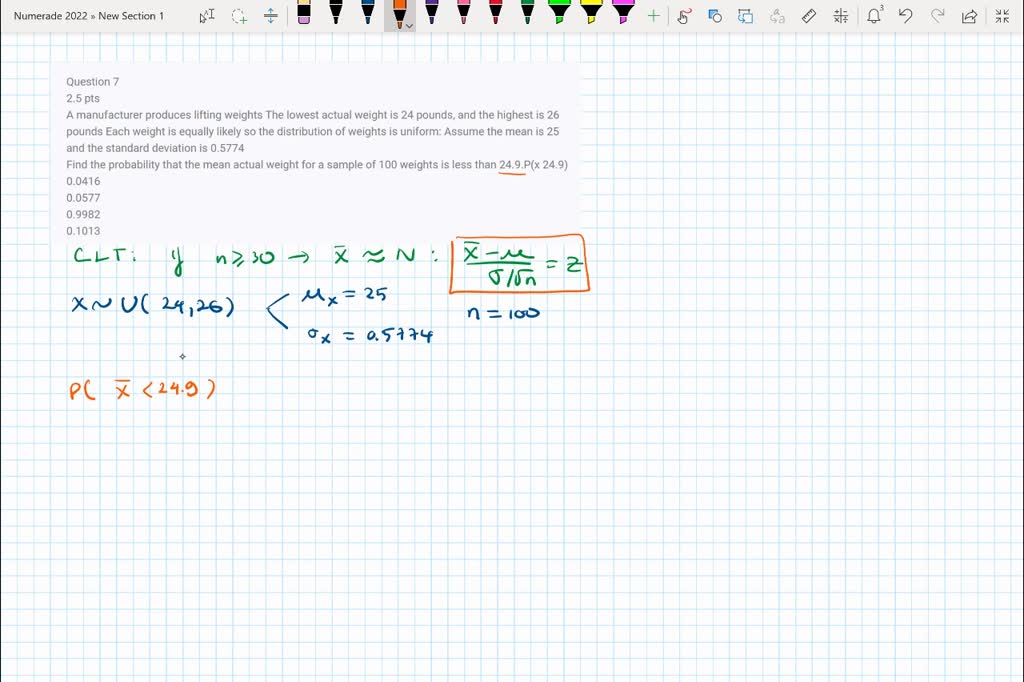 Numerade 2022 » New Section 1
3
Question 7
2.5 pts
A manufacturer produces lifting weights The lowest actual weight is 24 pounds, and the highest is 26
pounds Each weight is equally likely so the distribution of weights is uniform: Assume the mean is 25
and the standard deviation is 0.5774
Find the probability that the mean actual weight for a sample of 100 weights is less than 24.9.P(x 24.9)
0.0416
0.0577
0.9982
0.1013
CLT: if n ≥ 30 → x̄ ≈ N : (x̄ - μ)/(σ/√n) = z
X ~ U( 24,26) < μx = 25 n = 100
σx = 0.5774
P( x̄ < 24.9 )